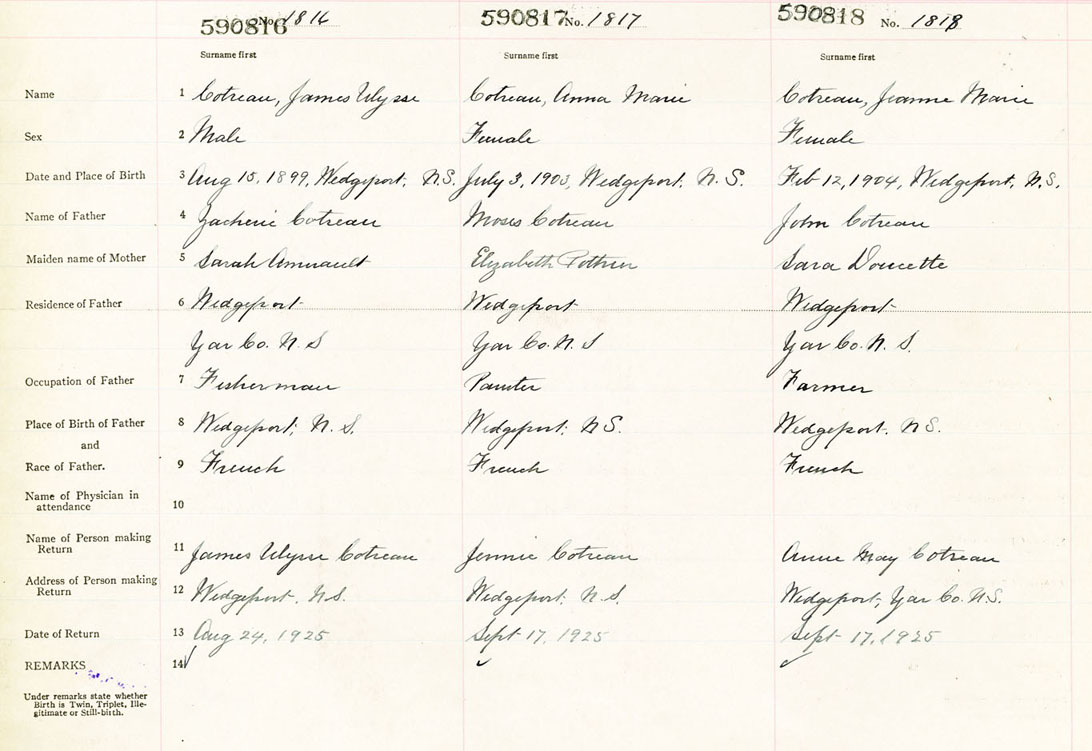 590816 No. 1816 590817 No. 1817 590818 No. 1818
Surname first Surname first Surname first
Name 1 Cotreau, James Ulysse Cotreau, Anna Marie Cotreau, Jeanne Marie
Sex 2 Male Female Female
Date and Place of Birth 3 Aug 15, 1899, Wedgeport, N.S. July 3, 1903, Wedgeport, N. S. Feb 12, 1904, Wedgeport, N.S.
Name of Father 4 Zacherie Cotreau Moses Cotreau John Cotreau
Maiden name of Mother 5 Sarah Amirault Elizabeth Pothier Sara Doucette
Residence of Father 6 Wedgeport Wedgeport Wedgeport
Yar Co. N. S Yar Co. N. S Yar Co. N. S.
Occupation of Father 7 Fisherman Painter Farmer
Place of Birth of Father 8 Wedgeport, N. S. Wedgeport, N S. Wedgeport, N S.
and
Race of Father. 9 French French French
Name of Physician in
attendance 10
Name of Person making
Return 11 James Ulysse Cotreau Jennie Cotreau Annie May Cotreau
Address of Person making
Return 12 Wedgeport. N.S. Wedgeport, N.S. Wedgeport, Yar Co. N.S.
Date of Return 13 Aug 24, 1925 Sept 17, 1925 Sept 17, 1925
REMARKS 14
Under remarks state whether
Birth is Twin, Triplet, Ille-
gitimate or Still-birth.